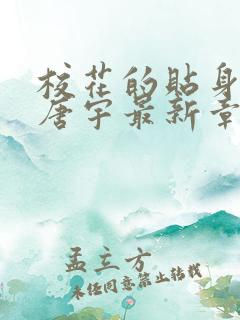 校花的贴身
唐宇最新章
孟立方
未经同意禁止转载